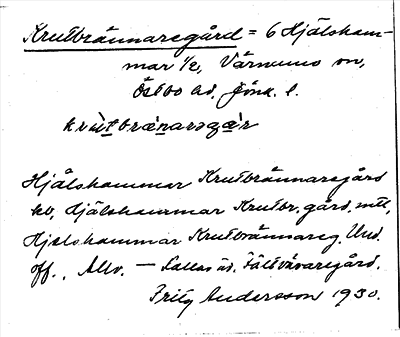 Krutbrännaregård = 6 Hjälsham-
mar 1/2, Värnamo sn,
Östbo hd. Jönk. l.
krùtbrænarəgæ̀r
Hjälshammar Krutbrännaregård
kv, Hjälshammar Krutbr. gård,
Hjelshammar Krutbrännareg. Und.
off., Allv. — Kallas äv. Fältväваregård.
Fritz Andersson 1930.